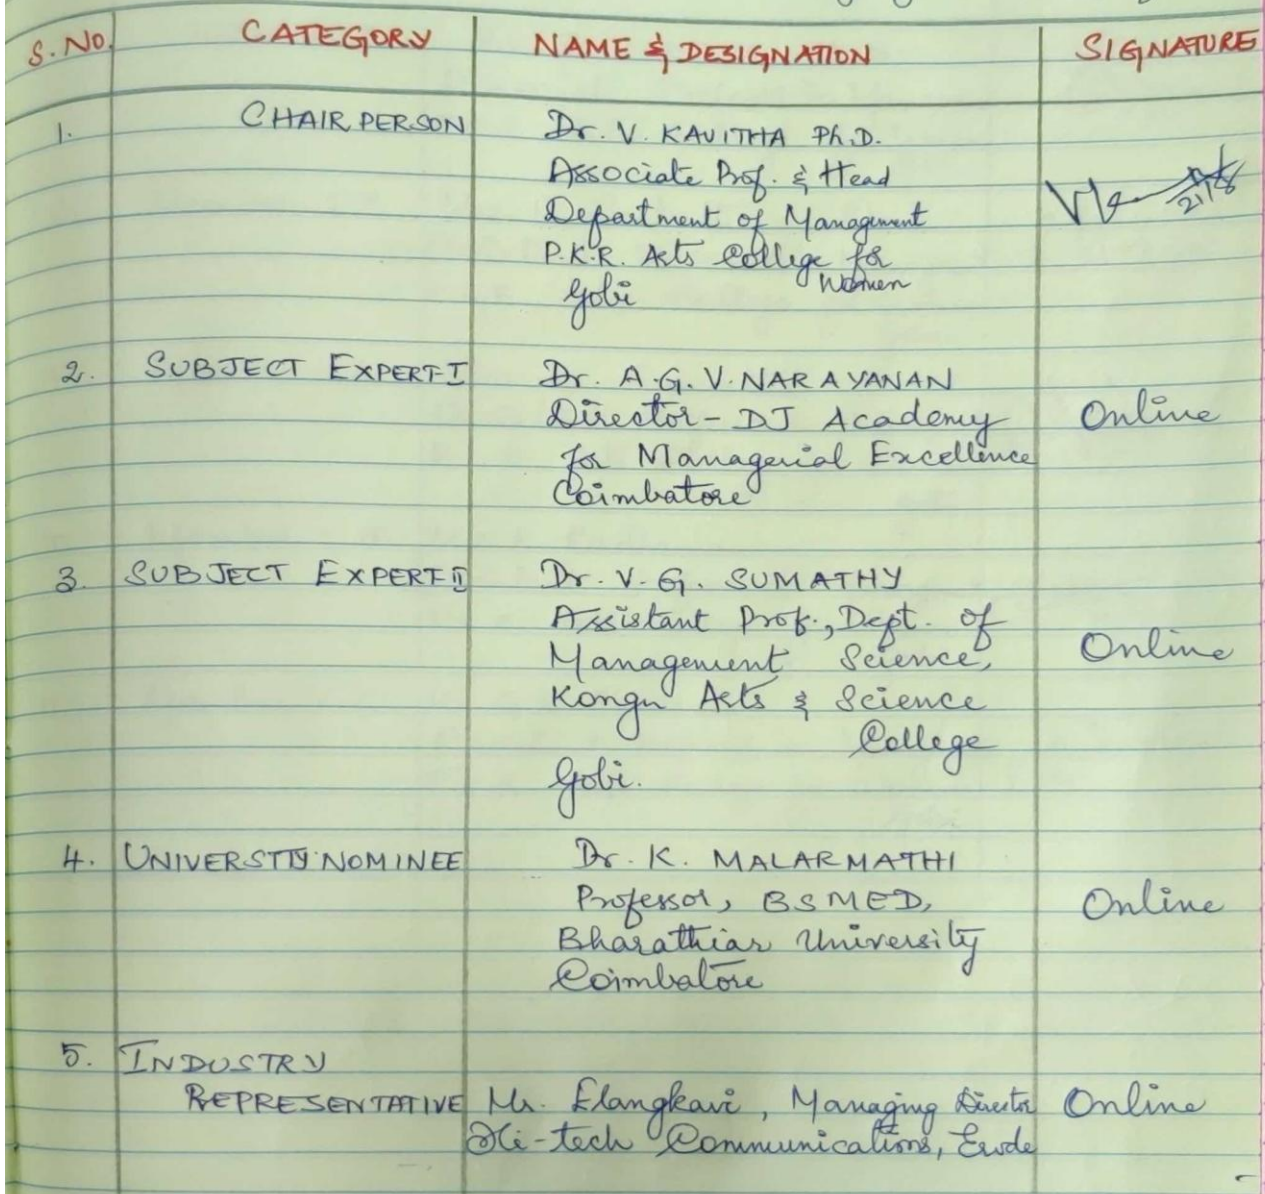 S.No. CATEGORY NAME & DESIGNATION SIGNATURE
1. CHAIR PERSON Dr. V. KAVITHA Ph.D.
Associate Prof. & Head
Department of Management
P.K.R. Arts College for
Women
Gobi
2. SUBJECT EXPERT-I Dr. A.G.V. NARAYANAN
Director - DJ Academy Online
for Managerial Excellence
Coimbatore
3. SUBJECT EXPERT-II Dr. V.G. SUMATHY
Assistant Prof., Dept. of
Management Science, Online
Kongu Arts & Science
College
Gobi.
4. UNIVERSTIY NOMINEE Dr. K. MALARMATHI
Professor, BSMED, Online
Bharathiar University
Coimbatore
5. INDUSTRY
REPRESENTATIVE Mr. Elangkavi, Managing Director Online
Hi-tech Communications, Erode